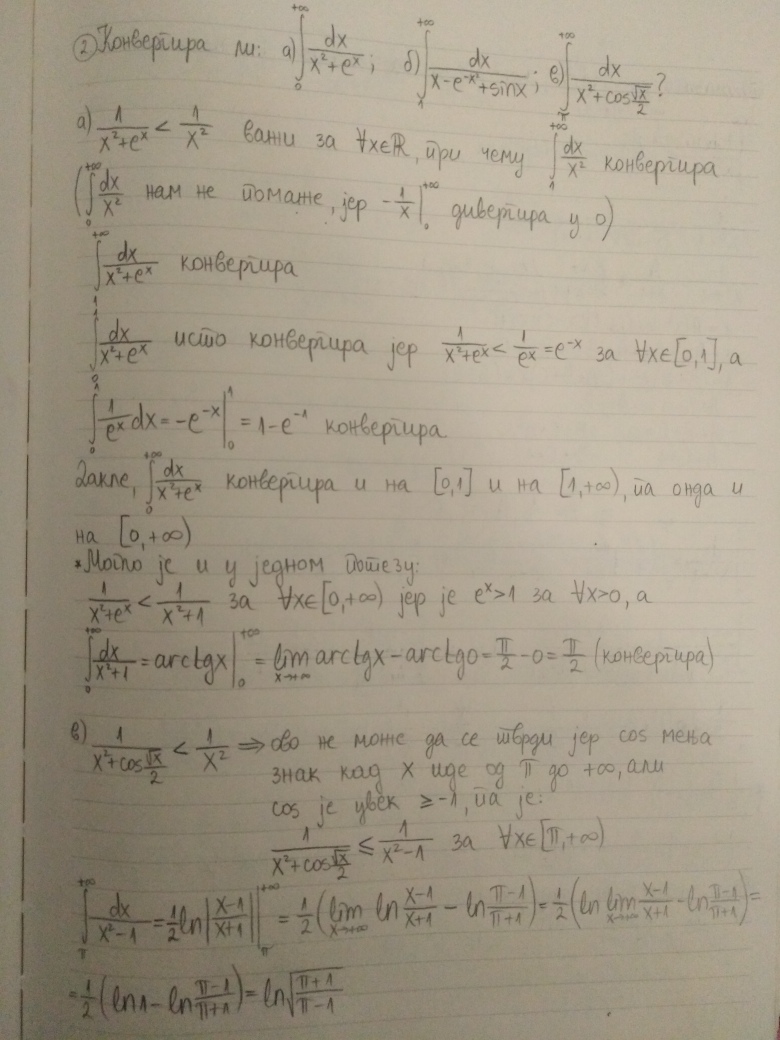 ② Конвергира ли: а) ∫₀^{+∞} dx/(x²+eˣ); б) ∫₁^{+∞} dx/(x-e^{-x²}+sinx); в) ∫_π^{+∞} dx/(x²+cos(√x/2))?
а) 1/(x²+eˣ) < 1/x² важи за ∀x∈ℝ, при чему ∫₁^{+∞} dx/x² конвергира
(∫₀^{+∞} dx/x² нам не помаже, јер -1/x |₀^{+∞} дивергира у 0)
∫₁^{+∞} dx/(x²+eˣ) конвергира
∫₀¹ dx/(x²+eˣ) исто конвергира јер 1/(x²+eˣ) < 1/eˣ = e⁻ˣ за ∀x∈[0,1], а
∫₀¹ 1/eˣ dx = -e⁻ˣ |₀¹ = 1-e⁻¹ конвергира
Дакле, ∫₀^{+∞} dx/(x²+eˣ) конвергира и на [0,1] и на [1,+∞), па онда и
на [0,+∞)
*Могло је и у једном потезу:
1/(x²+eˣ) < 1/(x²+1) за ∀x∈[0,+∞) јер је eˣ>1 за ∀x>0, а
∫₀^{+∞} dx/(x²+1) = arctgx |₀^{+∞} = lim_{x→+∞} arctgx - arctg0 = π/2 - 0 = π/2 (конвергира)
в) 1/(x²+cos(√x/2)) < 1/x² ⇒ ово не може да се тврди јер cos мења
знак кад x иде од π до +∞, али
cos је увек ≥-1, па је:
1/(x²+cos(√x/2)) ≤ 1/(x²-1) за ∀x∈[π,+∞)
∫_π^{+∞} dx/(x²-1) = 1/2 ln|(x-1)/(x+1)| |_π^{+∞} = 1/2 (lim_{x→+∞} ln (x-1)/(x+1) - ln (π-1)/(π+1)) = 1/2 (ln lim_{x→+∞} (x-1)/(x+1) - ln (π-1)/(π+1)) =
= 1/2 (ln1 - ln (π-1)/(π+1)) = ln √((π+1)/(π-1))